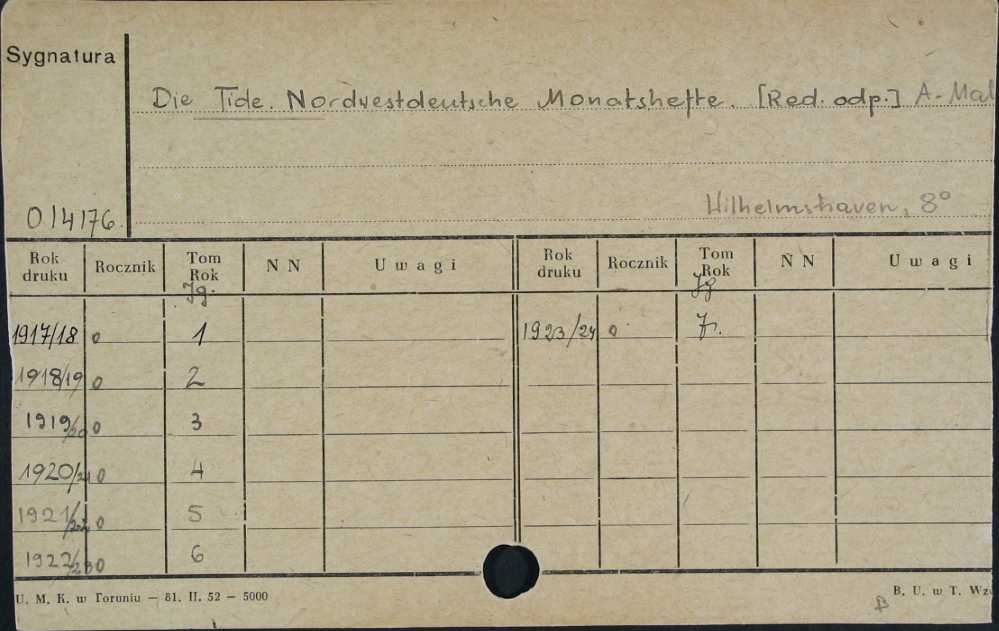 Sygnatura
Die Tide. Nordwestdeutsche Monatshefte. [Red. odp.] A. Mal
Wilhelmshaven, 8°
014176.
Rok druku Rocznik Tom Rok N N Uwagi Rok druku Rocznik Tom Rok N N Uwagi
Jg. Jg
1917/18 0 1 1923/24 0 7.
1918/19 0 2
1919/20 0 3
1920/21 0 4
1921/22 0 5
1922/23 0 6
U. M. K. w Toruniu — 81. II. 52 — 5000 B. U. w T. Wz
B